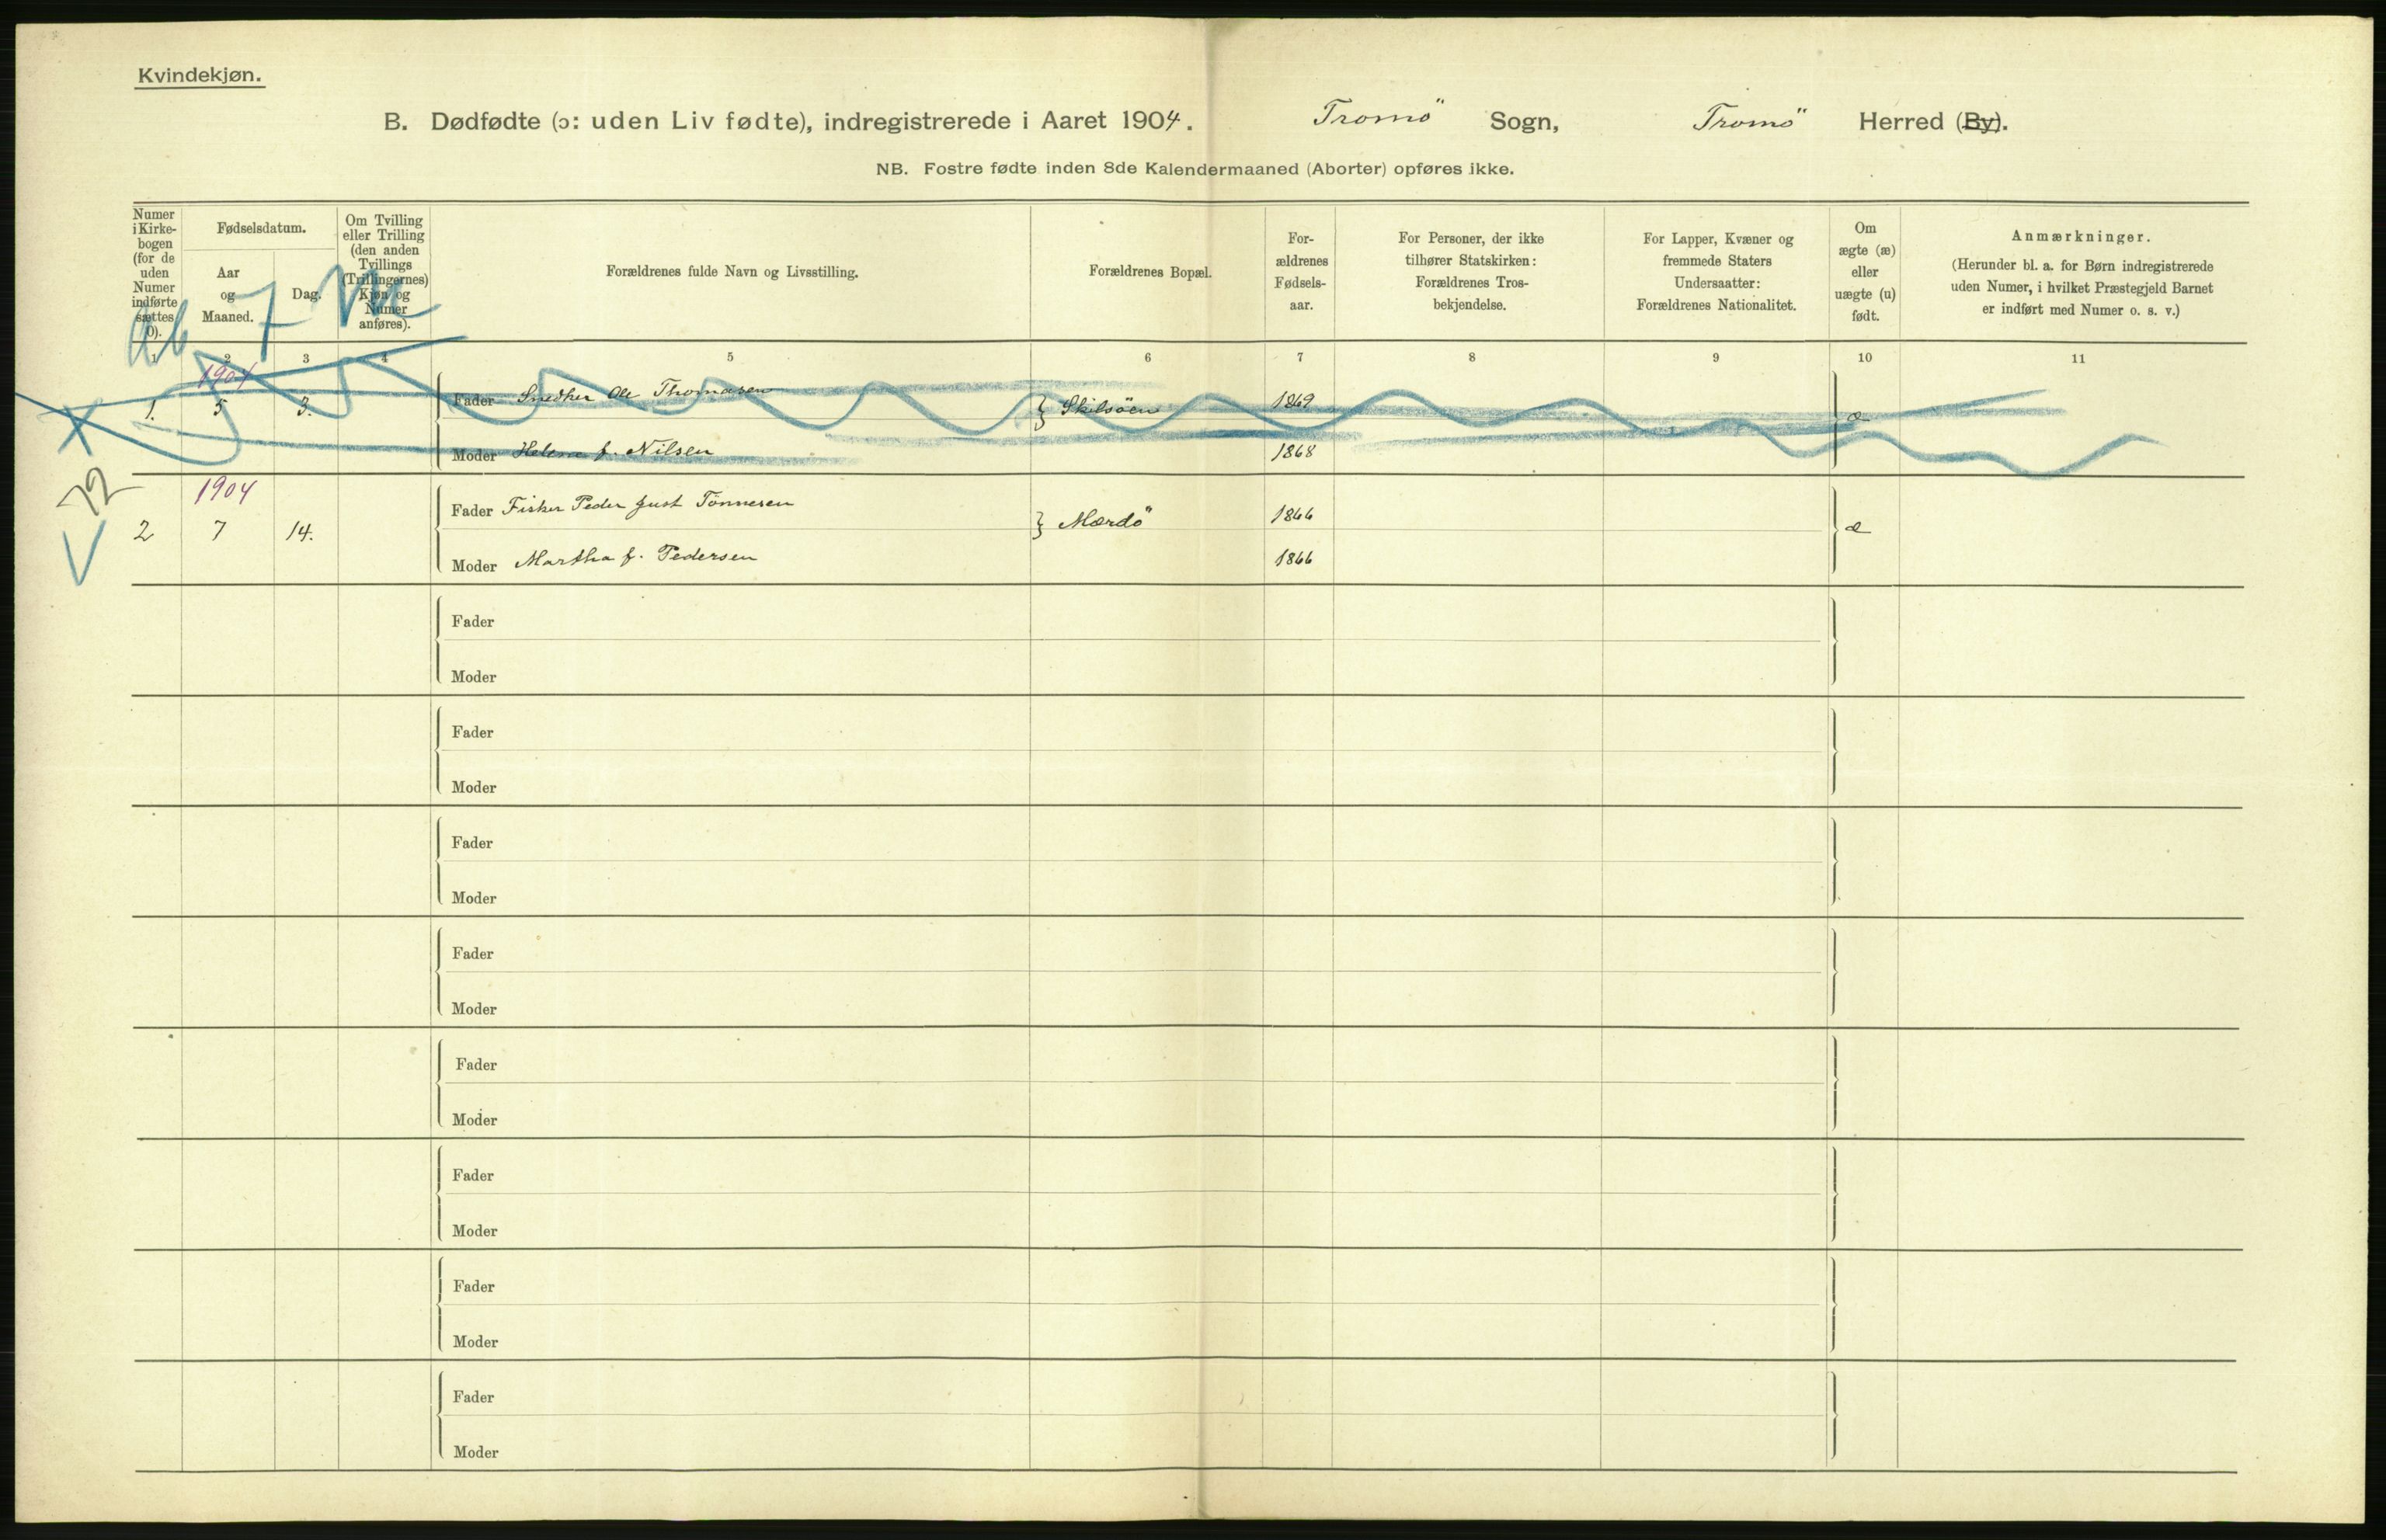 Kvindekjøn.
B. Dødfødte (ɔ: uden Liv fødte), indregistrerede i Aaret 1904. Tromö Sogn, Tromö Herred (By).
NB. Fostre fødte inden 8de Kalendermaaned (Aborter) opføres ikke.
Numer
i Kirke-
bogen
(for de
uden
Numer
indførte
sættes
0).
Fødselsdatum.
Aar
og
Maaned.
Dag.
Om Tvilling
eller Trilling
(den anden
Tvillings
(Trillingernes)
Kjøn og
Numer
anføres).
Forældrenes fulde Navn og Livsstilling.
Forældrenes Bopæl.
For-
ældrenes
Fødsels-
aar.
For Personer, der ikke
tilhører Statskirken:
Forældrenes Tros-
bekjendelse.
For Lapper, Kvæner og
fremmede Staters
Undersaatter:
Forældrenes Nationalitet.
Om
ægte (æ)
eller
uægte (u)
født.
Anmærkninger.
(Herunder bl. a. for Børn indregistrerede
uden Numer, i hvilket Præstegjeld Barnet
er indført med Numer o. s. v.)
1 2 3 4 5 6 7 8 9 10 11
1904
1. 5 3. Fader Snedker Ole Thomasen Skilsöen 1869 æ
Moder Helene f. Nilsen 1868
72
1904
2 7 14. Fader Fisker Peder Just Tönnesen Mærdö 1866 æ
Moder Martha f. Pedersen 1866
Fader
Moder
Fader
Moder
Fader
Moder
Fader
Moder
Fader
Moder
Fader
Moder
Fader
Moder
Fader
Moder